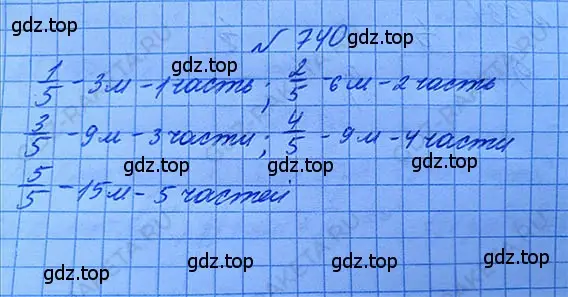 gdz.top gdz.top
№ 740
gdz.top
1/5 - 3м - 1 часть; 2/5 - 6м - 2 часть
3/5 - 9м - 3 части; 4/5 - 9м - 4 части
gdz.top gdz.top
5/5 - 15м - 5 частей
gdz.top
gdz.top gdz.top